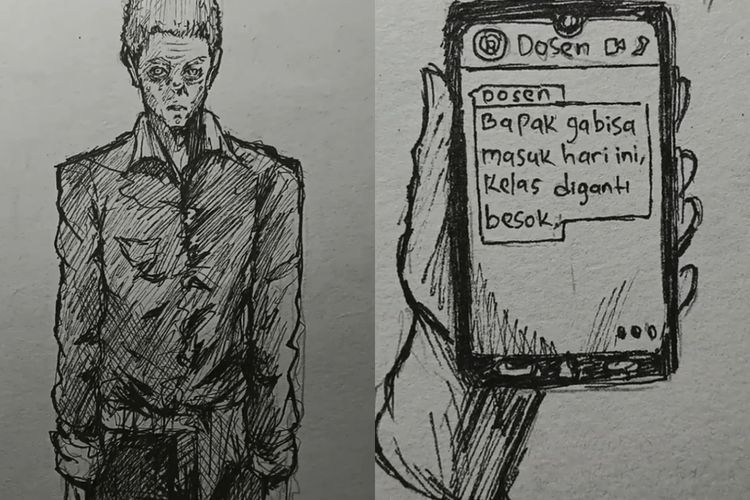 Dosen
Dosen
Bapak gabisa
masuk hari ini,
Kelas diganti
besok.